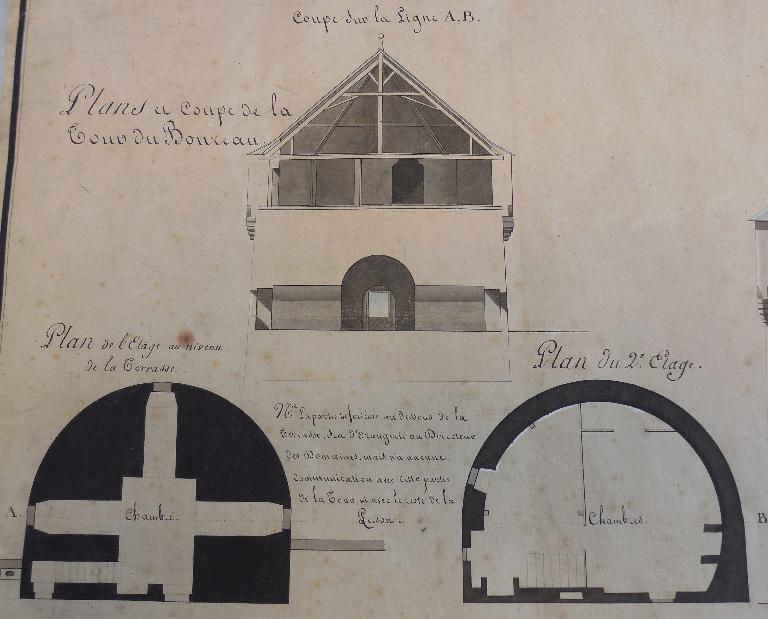 Coupe sur la Ligne A, B.
Plans et Coupe de la
Tour du Boureau.
Plan de l'Etage au niveau
de la Terrasse.
Plan du 2e. Etage.
Na. La partie inférieure au dessous de la
Terrasse, sert d'Orangerie au Directeur
des Domaines, mais n'a aucune
communication avec cette partie
de la Tour, ni avec le reste de la
Prison.
A.
Chambre.
Chambres.
B